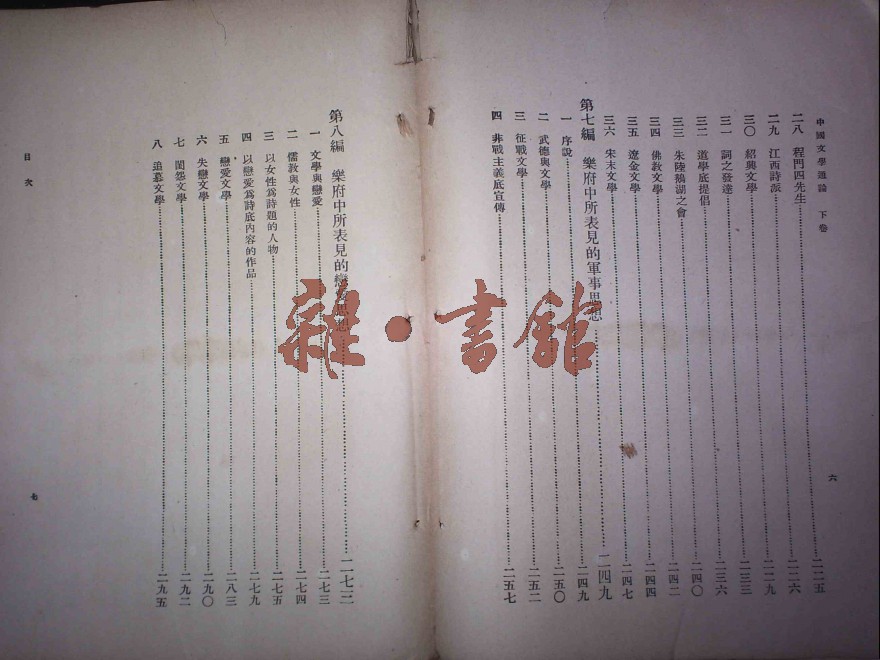 中國文學通論 下卷
二八 程門四先生……二二五
二九 江西詩派……二二六
三〇 紹興文學……二二九
三一 詞之發達……二三三
三二 道學底提倡……二三六
三三 朱陸鵝湖之會……二四〇
三四 佛教文學……二四二
三五 遼金文學……二四四
三六 宋末文學……二四七
第七編 樂府中所表見的軍事思想……二四九
一 序說……二四九
二 武德與文學……二五〇
三 征戰文學……二五二
四 非戰主義底宣傳……二五七
六
第八編 樂府中所表見的戀愛思想……二七三
一 文學與戀愛……二七三
二 儒教與女性……二七四
三 以女性爲詩題的人物……二七五
四 以戀愛爲詩底內容的作品……二七九
五 戀愛文學……二八三
六 失戀文學……二九〇
七 閨怨文學……二九二
八 追慕文學……二九五
目次
七
雜·書館